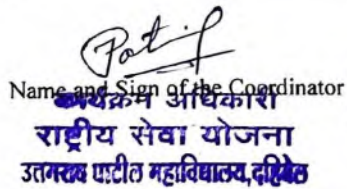 Patil
Name and Sign of the Coordinator
कार्यक्रम अधिकारी
राष्ट्रीय सेवा योजना
उत्तमराव पाटील महाविद्यालय, दहिवेल